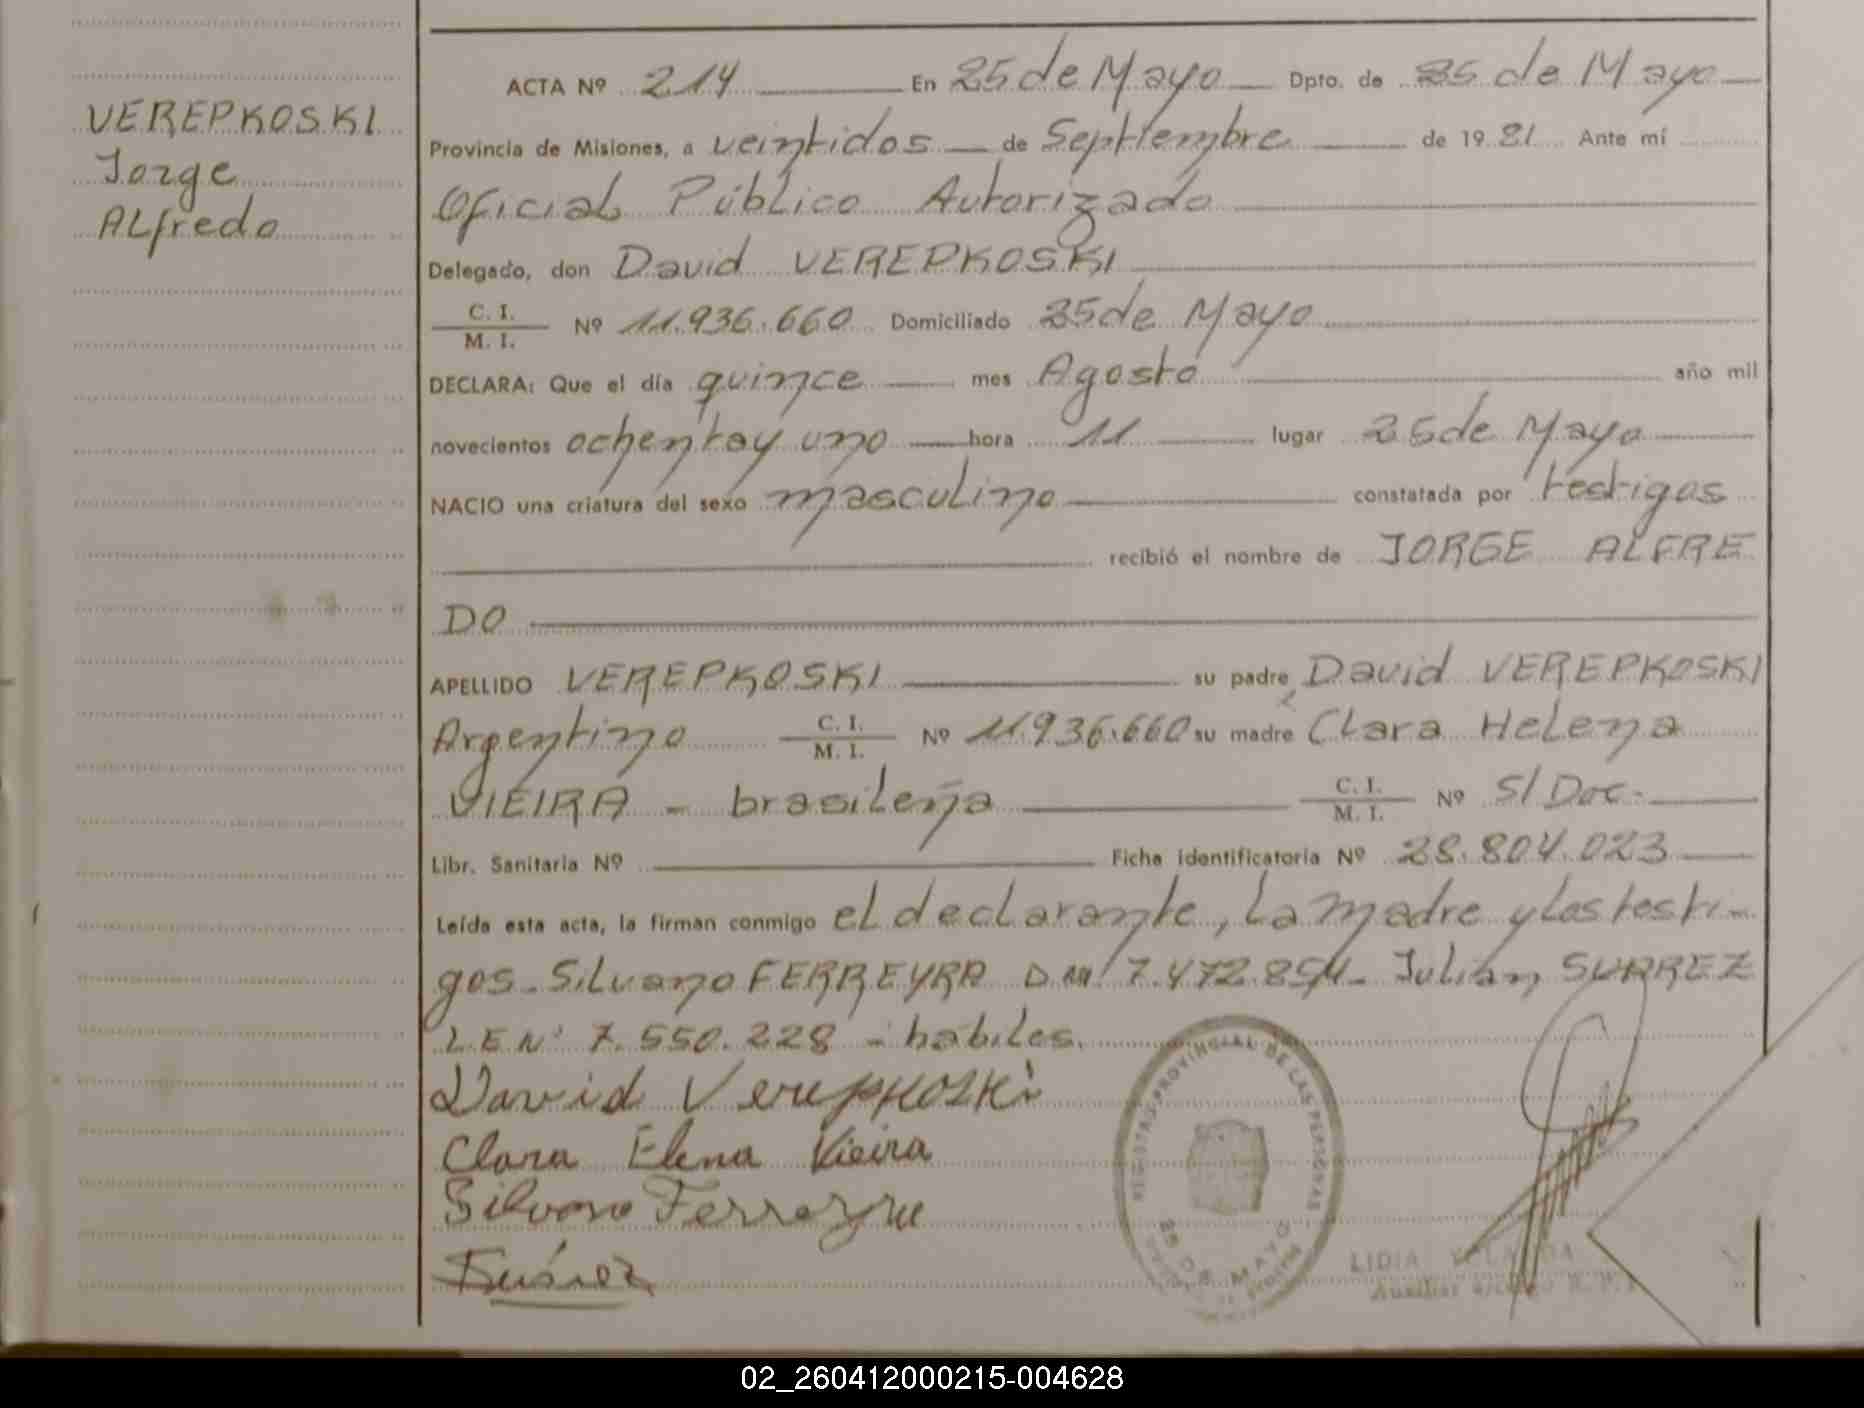 VEREPKOSKI
Jorge
ALfredo
ACTA Nº 214 En 25 de Mayo Dpto. de 25 de Mayo
Provincia de Misiones, a veintidos de Septiembre de 1981 Ante mí
Oficial Público Autorizado
Delegado, don David VEREPKOSKI
C. I.
M. I. Nº 11.936.660 Domiciliado 25 de Mayo
DECLARA: Que el día quince mes Agosto año mil
novecientos ochenta y uno hora 11 lugar 25 de Mayo
NACIO una criatura del sexo masculino constatada por testigos
recibió el nombre de JORGE ALFRE
DO
APELLIDO VEREPKOSKI su padre David VEREPKOSKI
Argentino C. I. M. I. Nº 11.936.660 su madre Clara Helena
VIEIRA - brasileña C. I. M. I. Nº S/ Doc.
Libr. Sanitaria Nº Ficha identificatoria Nº 28.804.023
Leída esta acta, la firman conmigo el declarante, la madre y los testi-
gos. Silvano FERREYRA 7.472.854 - Julián SUAREZ
L.E Nº 7.550.228 - habiles.
David Verepkoski
Clara Elena Vieira
Silvano Ferreyra
Suárez
REGISTRO PROVINCIAL DE LAS PERSONAS
25 DE MAYO
LIDIA
Auxiliar
02_260412000215-004628